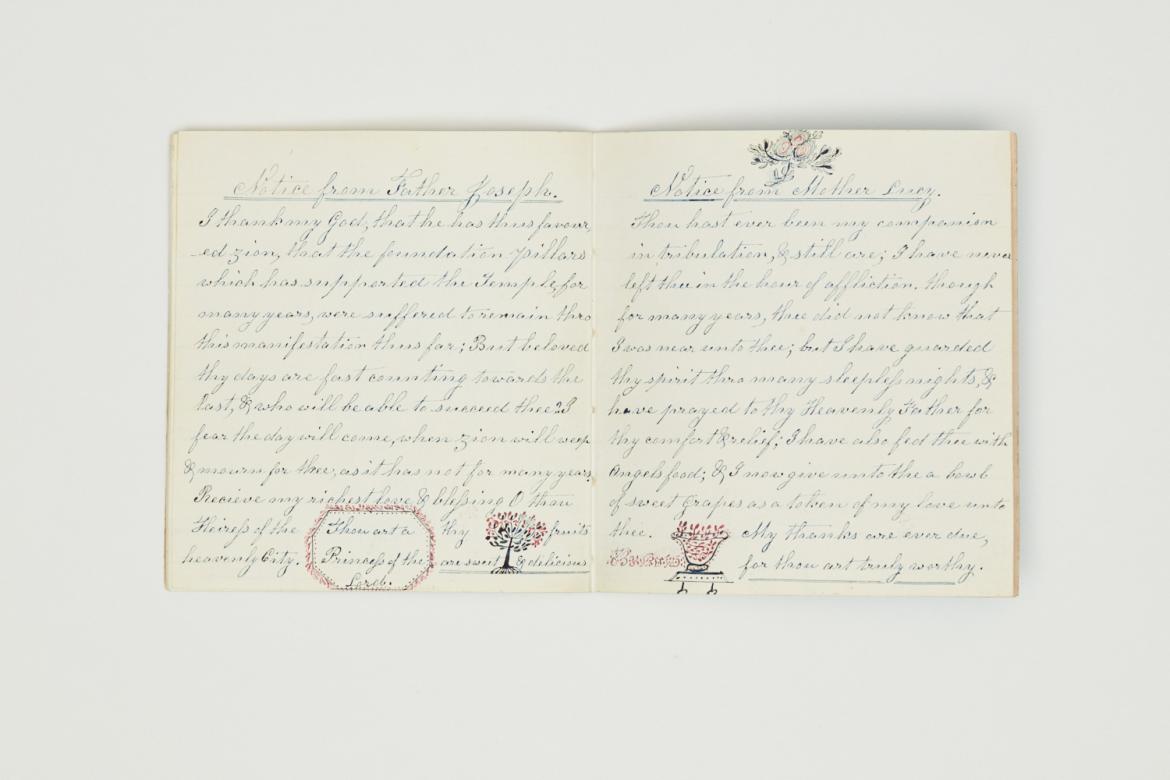 Notice from Father Joseph.
I thank my God, that he has thus favour,
-ed zion, that the foundation pillars
which has supported the Temple, for
many years, were suffered to remain thro
this manifestation thus far; But beloved
thy days are fast counting towards the
last, & who will be able to succeed thee? I
fear the day will come, when zion will weep
& mourn for thee, as it has not for many years,
Recieve my richest love & blessing O thou
Heiress of the
heavenly City.
Thou art a
Princess of the
Lord.
thy fruits
are sweet & delicious
Notice from Mother Lucy.
Thou hast ever been my companion
in tribulation, & still are; I have never
left thee in the hour of affliction. though
for many years, thee did not know that
I was near unto thee; but I have guarded
thy spirit thro many sleepless nights, &
have prayed to thy Heavenly Father for
thy comfort & relief; I have also fed thee with
Angels food; & I now give unto the a bowl
of sweet Grapes as a token of my love unto
thee. My thanks are ever due,
for thou art truly worthy.